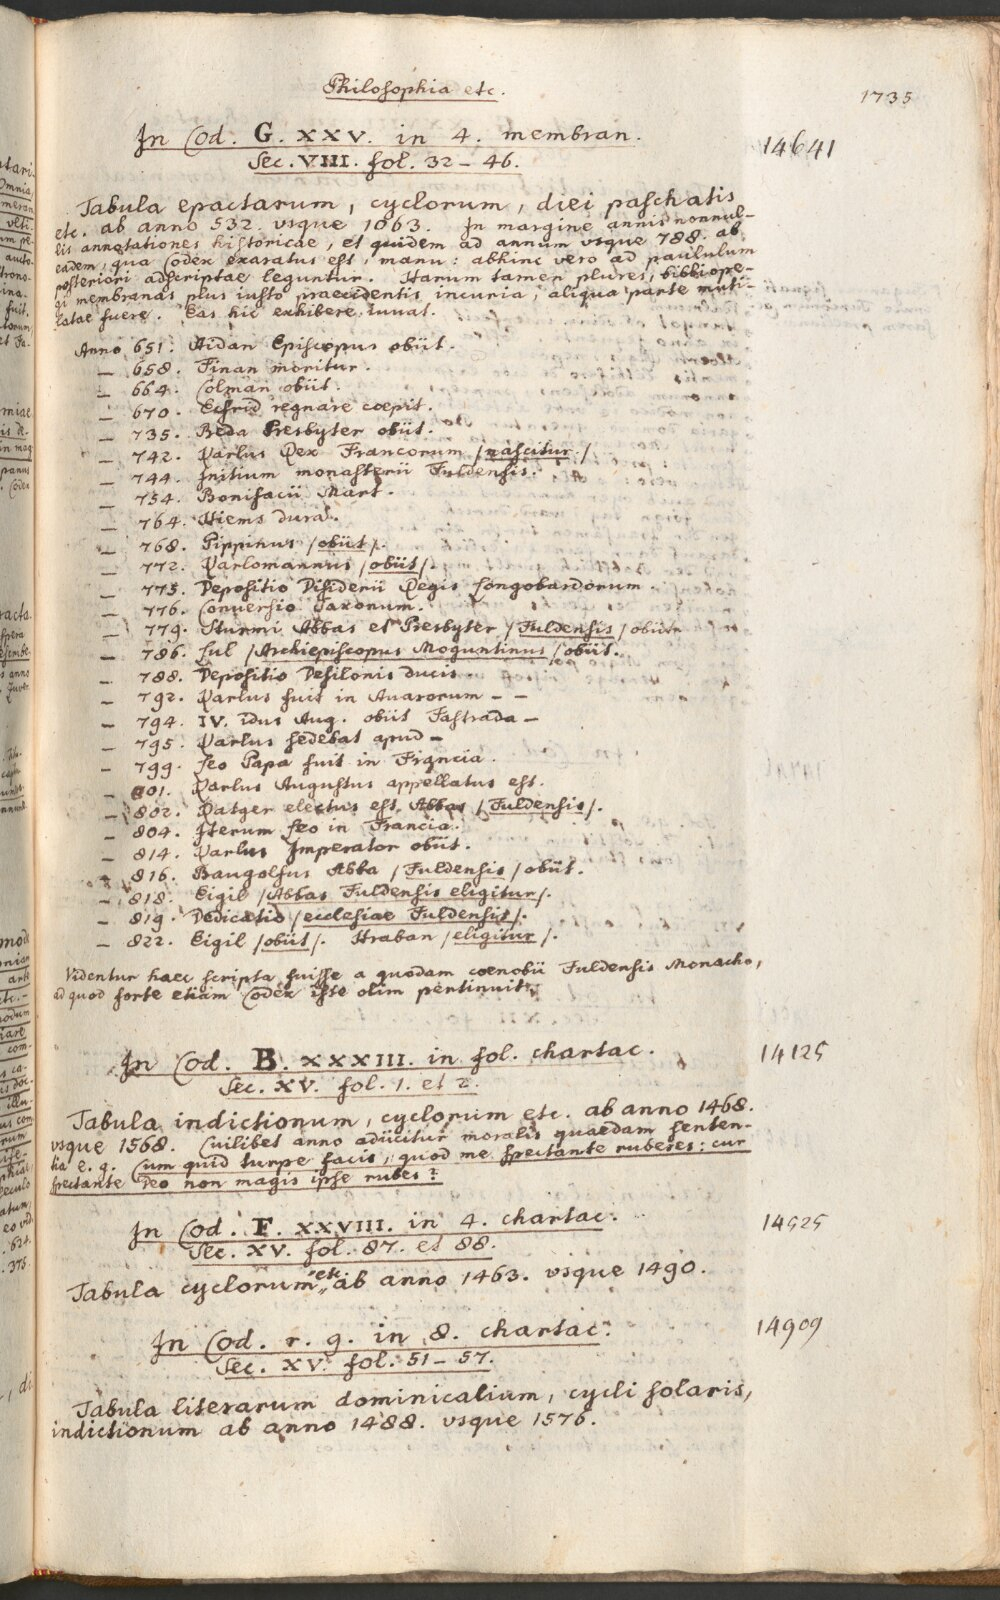 Philosophia etc.
1735
In Cod. G. XXV. in 4. membran.
14641
Sec. VIII. fol. 32 – 46.
Tabula epactarum, cyclorum, diei paschatis
etc. ab anno 532. vsque 1063. In margine annis nonnul-
lis annotationes historicae, et quidem ad annum vsque 788. ab
eadem, qua Codex exaratus est, manu: abhinc vero ad paululum
posteriori adscriptae leguntur. Harum tamen plures, bibliope-
gi membranas plus iusto praecidentis incuria, aliqua parte muti-
latae fuere. Eas hic exhibere iuvat.
Anno 651. Aidan Episcopus obiit.
– 658. Finan moritur.
– 664. Colman obiit.
– 670. Ecfrid regnare coepit.
– 735. Beda Presbyter obiit.
– 742. Karlus Rex Francorum /nascitur./
– 744. Initium monasterii Fuldensis.
– 754. Bonifacii Mart.
– 764. Hiems dura.
– 768. Pippinus /obiit/.
– 772. Karlomannus /obiit/.
– 773. Depositio Disiderii Regis Longobardorum.
– 776. Conversio Saxonum.
– 779. Sturmi Abbas et Presbyter /Fuldensis/ obiit.
– 786. Lul /Archiepiscopus Moguntinus/ obiit.
– 788. Depositio Desilonis ducis.
– 792. Karlus fuit in Auarorum – –
– 794. IV. idus Aug. obiit Fastrada –
– 795. Karlus sedebat apud –
– 799. Leo Papa fuit in Francia.
– 801. Karlus Augustus appellatus est.
– 802. Ratger electus est Abbas /Fuldensis/.
– 804. Iterum Leo in Francia.
– 814. Karlus Imperator obiit.
– 816. Baugolfus Abba /Fuldensis/ obiit.
– 818. Eigil /Abbas Fuldensis eligitur/.
– 819. Dedicatio /ecclesiae Fuldensis/.
– 822. Eigil /obiit/. Hraban /eligitur/.
Videntur haec scripta fuisse a quodam coenobii Fuldensis Monacho,
ad quod forte etiam Codex iste olim pertinuit.
In Cod. B. XXXIII. in fol. chartac.
14125
Sec. XV. fol. 1. et 2.
Tabula indictionum, cyclorum etc. ab anno 1468.
vsque 1568. Cuilibet anno adiicitur moralis quaedam senten-
tia e. g. Cum quid turpe facis, quod me spectante rubeses: cur
spectante Deo non magis ipse rubes?
In Cod. F. XXVIII. in 4. chartac.
14525
Sec. XV. fol. 87. et 88.
Tabula cyclorum etc. ab anno 1463. vsque 1490.
In Cod. r. g. in 8. chartac.
14909
Sec. XV. fol. 51 – 57.
Tabula literarum dominicalium, cycli solaris,
indictionum ab anno 1488. vsque 1576.